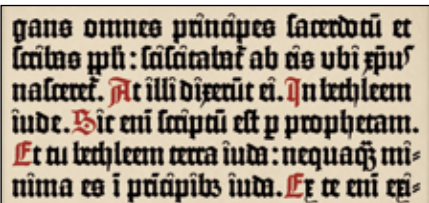 gans omnes principes sacerdotū et
scribas ppli: sciscitabat᷑ ab eis ubi xpus
nasceret᷑. At illi dixerūt ei. In bethleem
iude. Sic eni scriptū est p prophetam.
Et tu bethleem terra iuda: nequaq̄ mi-
nima es ī prīcipibꝫ iuda. Ex te eni exi-